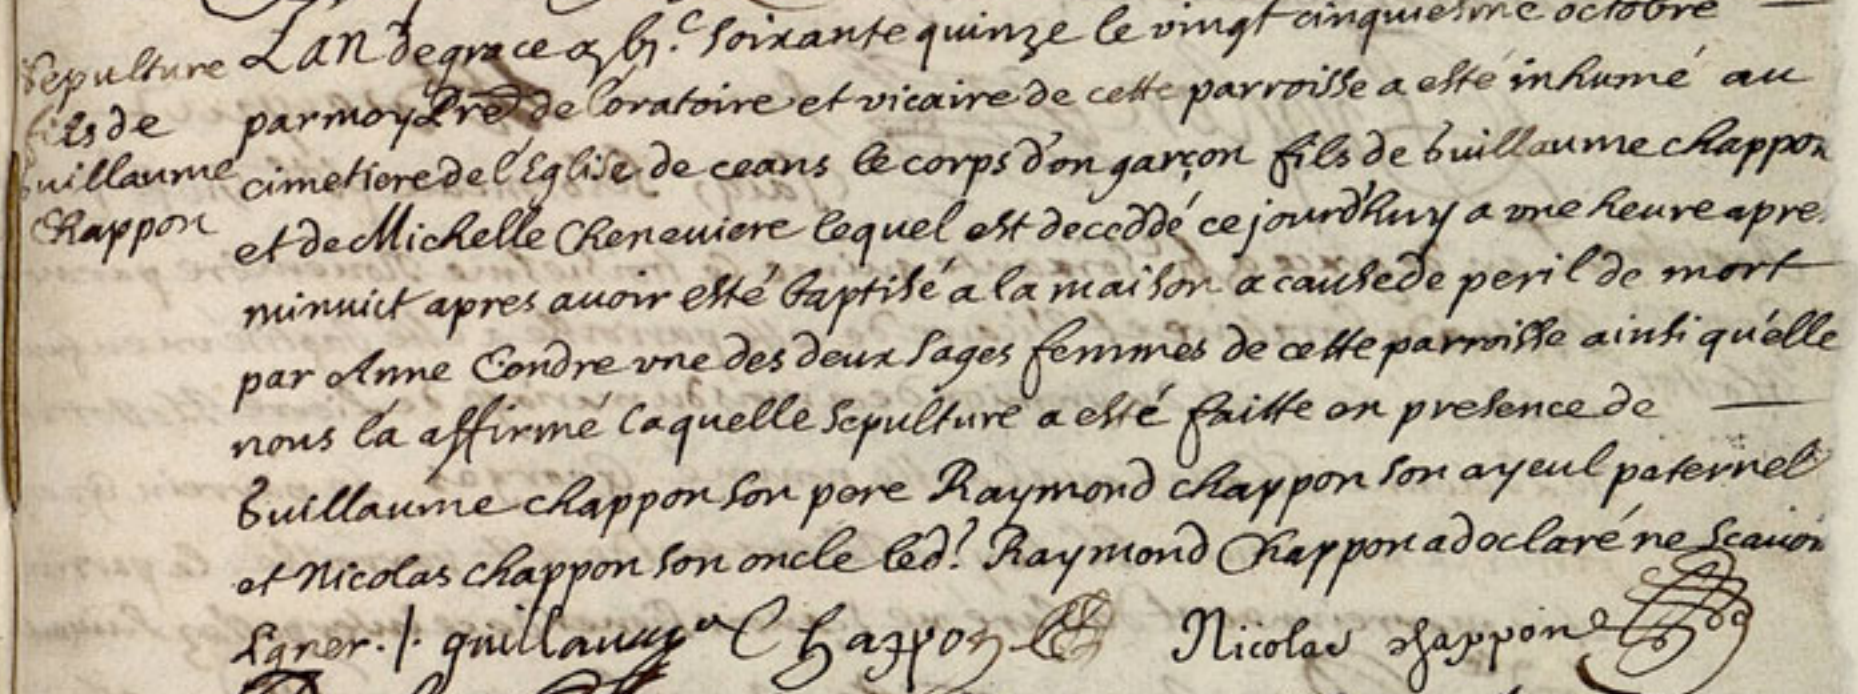 Sepulture
fils de
Guillaume
Chappon
L'an de grace g bj.c soixante quinze le vingt cinquiesme octobre
par moy Pre de l'oratoire et vicaire de cette parroisse a esté inhumé au
cimetiere de l'Eglise de ceans le corps d'on garçon fils de Guillaume chappon
et de Michelle Cheneuiere lequel est deceddé ce jourd'huy a vne heure apres
minuict apres auoir esté baptisé a la maison a cause de peril de mort
par Anne Condre vne des deux sages femmes de cette parroisse ainsi qu'elle
nous l'a affirmé laquelle sepulture a esté faitte en presence de
Guillaume chappon son pere Raymond chappon son ayeul paternel
et Nicolas chappon son oncle led.t Raymond Chappon a declaré ne scauoir
signer ./. guillaume Chappon Nicolas chappon